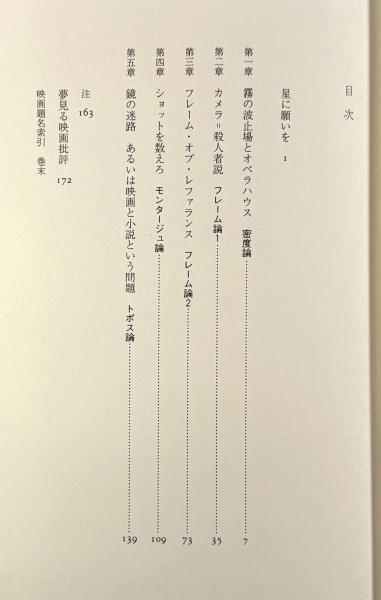 目次
星に願いを 1
第一章 霧の波止場とオペラハウス 密度論……7
第二章 カメラ=殺人者説 フレーム論1……35
第三章 フレーム・オブ・レファランス フレーム論2……73
第四章 ショットを数えろ モンタージュ論……109
第五章 鏡の迷路 あるいは映画と小説という問題 トポス論……139
注 163
夢見る映画批評 172
映画題名索引 巻末